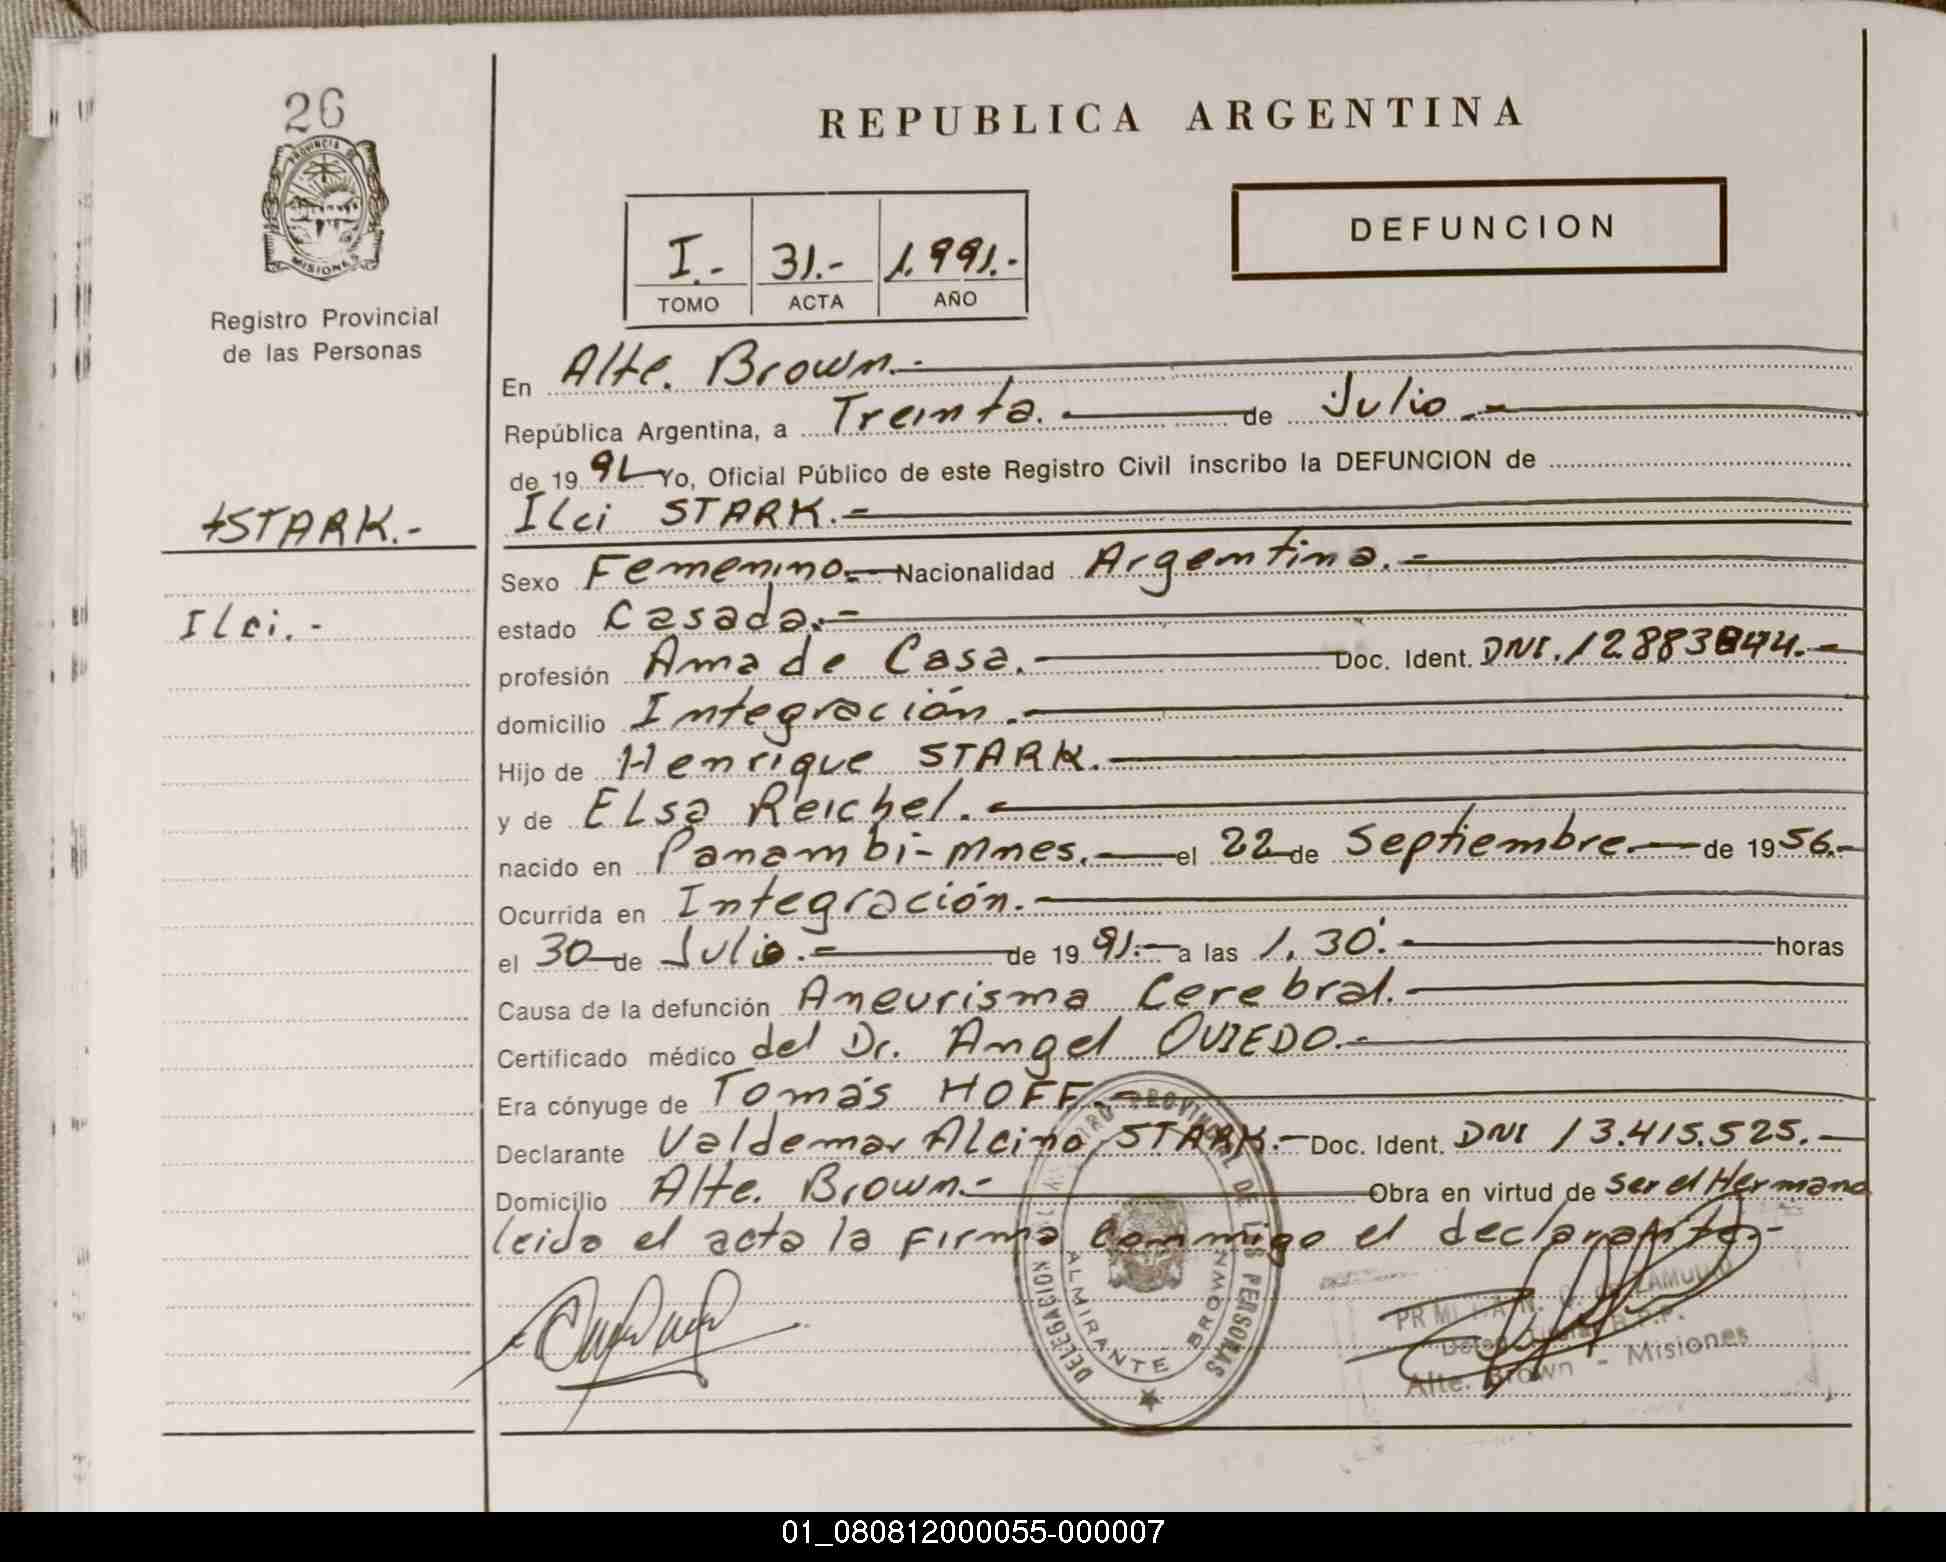 26
PROVINCIA DE
MISIONES
Registro Provincial
de las Personas
+STARK.-
Ilci.-
REPUBLICA ARGENTINA
DEFUNCION
I.- 31.- 1.991.-
TOMO ACTA AÑO
En Alte. Brown.-
República Argentina, a Treinta. de Julio.-
de 1991 Yo, Oficial Público de este Registro Civil inscribo la DEFUNCION de
Ilci STARK.-
Sexo Femenino.- Nacionalidad Argentina.-
estado Casada.-
profesión Ama de Casa.- Doc. Ident. DNI. 12.883.-
domicilio Integración.-
Hijo de Henrique STARK.-
y de Elsa Reichel.-
nacido en Panambi-Mnes.- el 22 de Septiembre.- de 1956.-
Ocurrida en Integración.-
el 30 de Julio.- de 1991.- a las 1,30'.- horas
Causa de la defunción Aneurisma Cerebral.-
Certificado médico del Dr. Angel OVIEDO.-
Era cónyuge de Tomás HOFF.-
Declarante Valdemar Alcino STARK.- Doc. Ident. DNI 13.415.525.-
Domicilio Alte. Brown.- Obra en virtud de ser el Hermano
leida el acta la firma conmigo el declarante.-
PROVINCIAL DE LAS PERSONAS
DELEGACION
ALMIRANTE BROWN
ZAMUDIO
Alte. Brown - Misiones
01_080812000055-000007